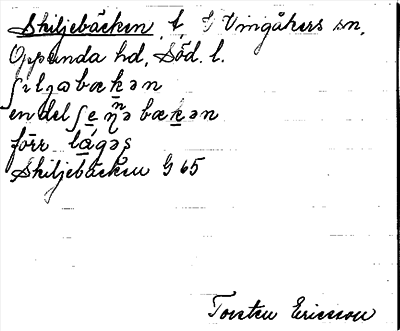 Skiljebäcken, t. G Vingåkers sn,
Oppunda hd, Söd. l.
ʃɪlɟabækən
en del ʃeɳəbækən
förr lägəʂ
Skiljebäcken G 65
Torsten Ericsson